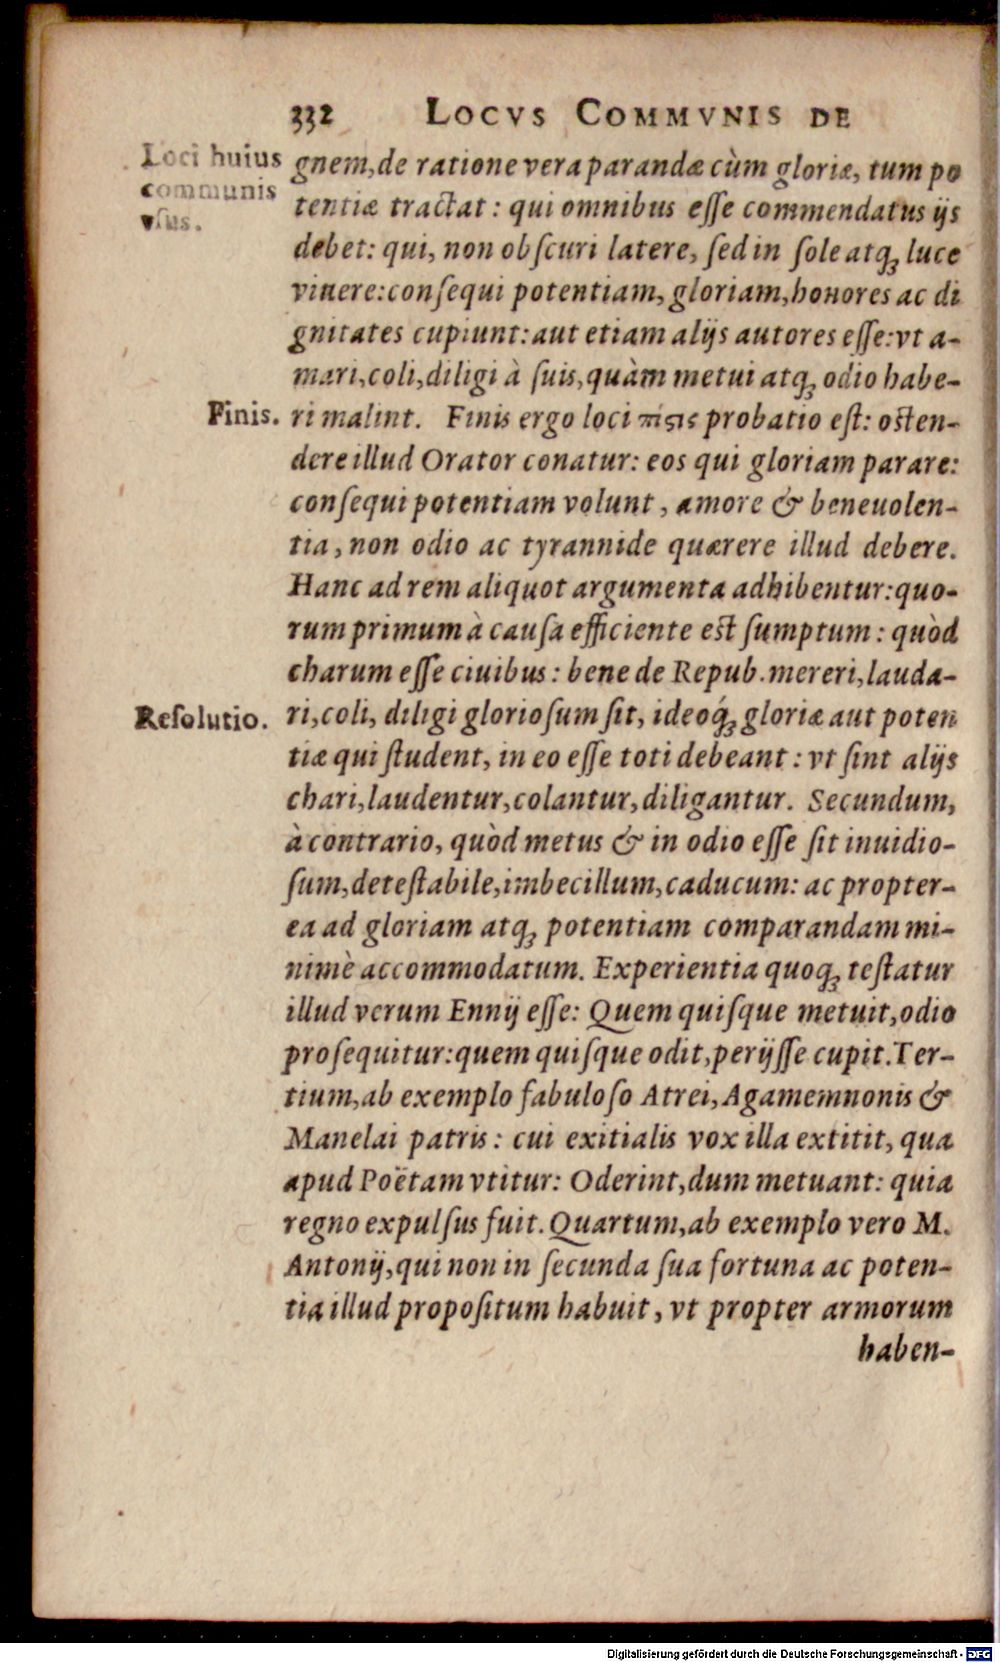 332 LOCVS COMMVNIS DE
Loci huius
communis
vſus.
gnem, de ratione vera parandæ cùm gloriæ, tum po
tentiæ tractat: qui omnibus eſſe commendatus ijs
debet: qui, non obſcuri latere, ſed in ſole atq; luce
viuere: conſequi potentiam, gloriam, honores ac di
gnitates cupiunt: aut etiam alijs autores eſſe: vt a-
mari, coli, diligi à ſuis, quàm metui atq; odio habe-
Finis.
ri malint. Finis ergo loci πίςις probatio eſt: oſten-
dere illud Orator conatur: eos qui gloriam parare:
conſequi potentiam volunt, amore & beneuolen-
tia, non odio ac tyrannide quærere illud debere.
Hanc ad rem aliquot argumenta adhibentur: quo-
rum primum à cauſa efficiente eſt ſumptum: quòd
charum eſſe ciuibus: bene de Repub. mereri, lauda-
Reſolutio.
ri, coli, diligi glorioſum ſit, ideoq́; gloriæ aut poten
tiæ qui ſtudent, in eo eſſe toti debeant: vt ſint alijs
chari, laudentur, colantur, diligantur. Secundum,
à contrario, quòd metus & in odio eſſe ſit inuidio-
ſum, deteſtabile, imbecillum, caducum: ac propter-
ea ad gloriam atq; potentiam comparandam mi-
nimè accommodatum. Experientia quoq; teſtatur
illud verum Ennij eſſe: Quem quiſque metuit, odio
proſequitur: quem quiſque odit, perijſſe cupit. Ter-
tium, ab exemplo fabuloſo Atrei, Agamemnonis &
Manelai patris: cui exitialis vox illa extitit, qua
apud Poëtam vtitur: Oderint, dum metuant: quia
regno expulſus fuit. Quartum, ab exemplo vero M.
Antonij, qui non in ſecunda ſua fortuna ac poten-
tia illud propoſitum habuit, vt propter armorum
haben-
Digitalisierung gefördert durch die Deutsche Forschungsgemeinschaft - DFG